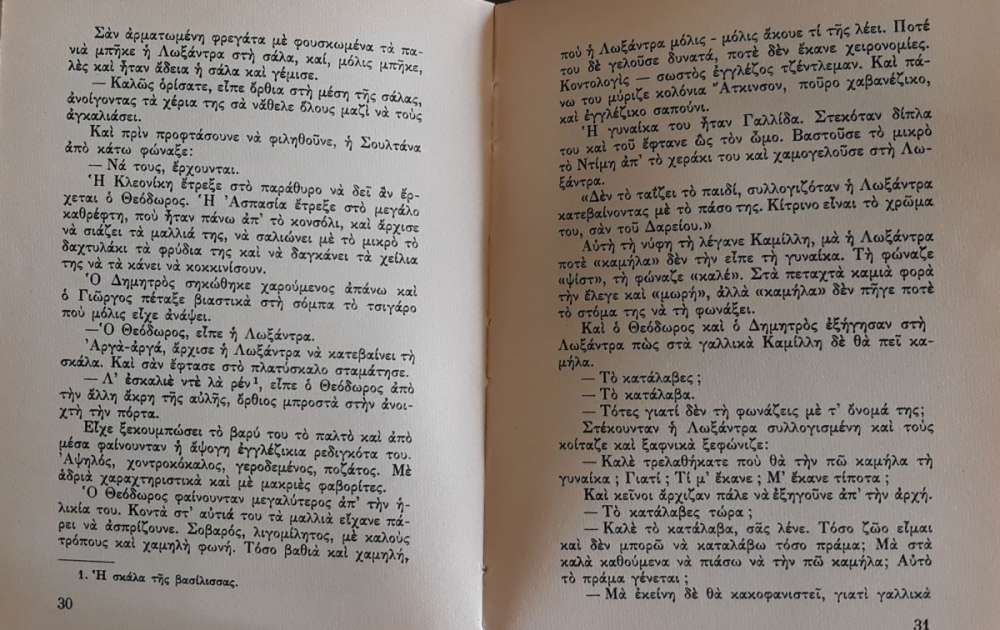 Σὰν ἁρματωμένη φρεγάτα μὲ φουσκωμένα τὰ πα-
νιὰ μπῆκε ἡ Λωξάντρα στὴ σάλα, καί, μόλις μπῆκε,
λὲς καὶ ἦταν ἄδεια ἡ σάλα καὶ γέμισε.
— Καλῶς ὁρίσατε, εἶπε ὄρθια στὴ μέση τῆς σάλας,
ἀνοίγοντας τὰ χέρια της σὰ νἄθελε ὅλους μαζὶ νὰ τοὺς
ἀγκαλιάσει.
Καὶ πρὶν προφτάσουνε νὰ φιληθοῦνε, ἡ Σουλτάνα
ἀπὸ κάτω φώναξε:
— Νά τους, ἔρχουνται.
Ἡ Κλεονίκη ἔτρεξε στὸ παράθυρο νὰ δεῖ ἂν ἔρ-
χεται ὁ Θεόδωρος. Ἡ Ἀσπασία ἔτρεξε στὸ μεγάλο
καθρέφτη, ποὺ ἦταν πάνω ἀπ' τὸ κονσόλι, καὶ ἄρχισε
νὰ σιάζει τὰ μαλλιά της, νὰ σαλιώνει μὲ τὸ μικρὸ τὸ
δαχτυλάκι τὰ φρύδια της καὶ νὰ δαγκάνει τὰ χείλια
της νὰ τὰ κάνει νὰ κοκκινίσουν.
Ὁ Δημητρὸς σηκώθηκε χαρούμενος ἀπάνω καὶ
ὁ Γιῶργος πέταξε βιαστικὰ στὴ σόμπα τὸ τσιγάρο
ποὺ μόλις εἶχε ἀνάψει.
—Ὁ Θεόδωρος, εἶπε ἡ Λωξάντρα.
Ἀργὰ-ἀργά, ἄρχισε ἡ Λωξάντρα νὰ κατεβαίνει τὴ
σκάλα. Καὶ σὰν ἔφτασε στὸ πλατύσκαλο σταμάτησε.
— Λ' ἐσκαλιὲ ντὲ λὰ ρέν¹, εἶπε ὁ Θεόδωρος ἀπὸ
τὴν ἄλλη ἄκρη τῆς αὐλῆς, ὄρθιος μπροστὰ στὴν ἀνοι-
χτὴ τὴν πόρτα.
Εἶχε ξεκουμπώσει τὸ βαρύ του τὸ παλτὸ καὶ ἀπὸ
μέσα φαίνουνταν ἡ ἄψογη ἐγγλέζικια ρεδιγκότα του.
Ἀψηλός, χοντροκόκαλος, γεροδεμένος, ποζάτος. Μὲ
ἁδριὰ χαραχτηριστικὰ καὶ μὲ μακριὲς φαβορίτες.
Ὁ Θεόδωρος φαίνουνταν μεγαλύτερος ἀπ' τὴν ἡ-
λικία του. Κοντὰ στ' αὐτιά του τὰ μαλλιὰ εἴχανε πά-
ρει νὰ ἀσπρίζουνε. Σοβαρός, λιγομίλητος, μὲ καλοὺς
τρόπους καὶ χαμηλὴ φωνή. Τόσο βαθιὰ καὶ χαμηλή,
1. Ἡ σκάλα τῆς βασίλισσας.
30
ποὺ ἡ Λωξάντρα μόλις - μόλις ἄκουε τί τῆς λέει. Ποτέ
του δὲ γελοῦσε δυνατά, ποτὲ δὲν ἔκανε χειρονομίες.
Κοντολογὶς — σωστὸς ἐγγλέζος τζέντλεμαν. Καὶ πά-
νω του μύριζε κολόνια Ἄτκινσον, ποῦρο χαβανέζικο,
καὶ ἐγγλέζικο σαπούνι.
Ἡ γυναίκα του ἦταν Γαλλίδα. Στεκόταν δίπλα
του καὶ τοῦ ἔφτανε ὣς τὸν ὦμο. Βαστοῦσε τὸ μικρὸ
τὸ Ντίμη ἀπ' τὸ χεράκι του καὶ χαμογελοῦσε στὴ Λω-
ξάντρα.
«Δὲν τὸ ταΐζει τὸ παιδί, συλλογιζόταν ἡ Λωξάντρα
κατεβαίνοντας μὲ τὸ πάσο της. Κίτρινο εἶναι τὸ χρῶμα
του, σὰν τοῦ Δαρείου.»
Αὐτὴ τὴ νύφη τὴ λέγανε Καμίλλη, μὰ ἡ Λωξάντρα
ποτὲ «καμήλα» δὲν τὴν εἶπε τὴ γυναίκα. Τὴ φώναζε
«ψίστ», τὴ φώναζε «καλέ». Στὰ πεταχτὰ καμιὰ φορὰ
τὴν ἔλεγε καὶ «μωρή», ἀλλὰ «καμήλα» δὲν πῆγε ποτὲ
τὸ στόμα της νὰ τὴ φωνάξει.
Καὶ ὁ Θεόδωρος καὶ ὁ Δημητρὸς ἐξήγησαν στὴ
Λωξάντρα πὼς στὰ γαλλικὰ Καμίλλη δὲ θὰ πεῖ κα-
μήλα.
— Τὸ κατάλαβες ;
— Τὸ κατάλαβα.
— Τότες γιατὶ δὲν τὴ φωνάζεις μὲ τ' ὄνομά της;
Στέκουνταν ἡ Λωξάντρα συλλογισμένη καὶ τοὺς
κοίταζε καὶ ξαφνικὰ ξεφώνιζε:
— Καλὲ τρελαθήκατε ποὺ θὰ τὴν πῶ καμήλα τὴ
γυναίκα ; Γιατί ; Τί μ' ἔκανε ; Μ' ἔκανε τίποτα ;
Καὶ κεῖνοι ἄρχιζαν πάλε νὰ ἐξηγοῦνε ἀπ' τὴν ἀρχή.
— Τὸ κατάλαβες τώρα ;
— Καλὲ τὸ κατάλαβα, σᾶς λένε. Τόσο ζῶο εἶμαι
καὶ δὲν μπορῶ νὰ καταλάβω τόσο πράμα; Μὰ στὰ
καλὰ καθούμενα νὰ πιάσω νὰ τὴν πῶ καμήλα; Αὐτὸ
τὸ πράμα γένεται ;
— Μὰ ἐκείνη δὲ θὰ κακοφανιστεῖ, γιατὶ γαλλικὰ
31